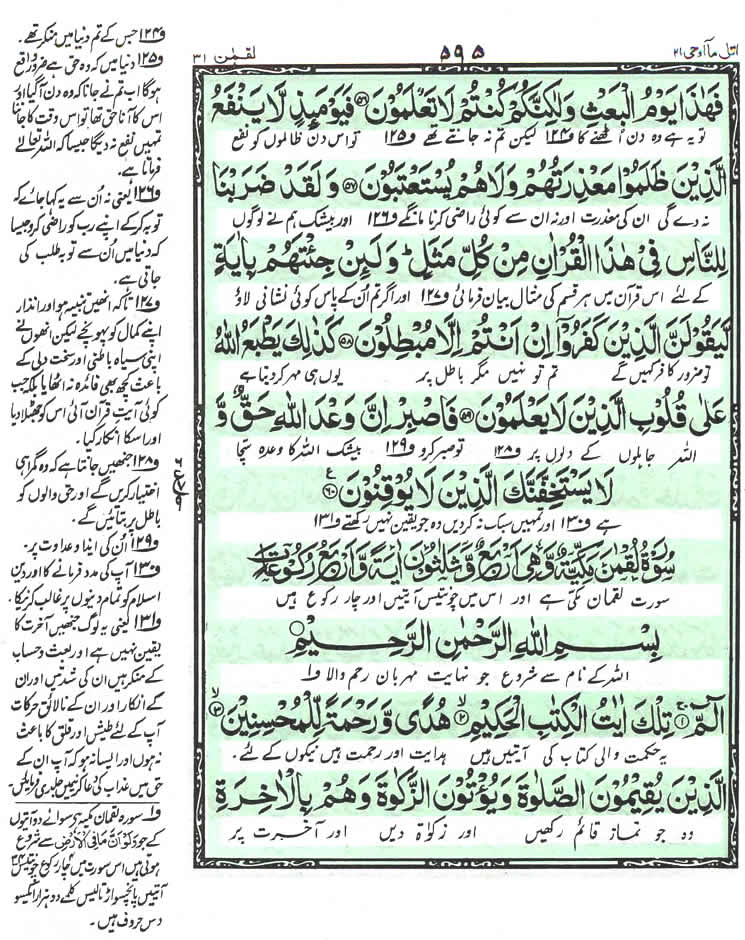 اتل مآ اوحی ۲۱
۵۹۵
لقمٰن ۳۱
فَهٰذَا یَوْمُ الْبَعْثِ وَلٰكِنَّكُمْ كُنْتُمْ لَا تَعْلَمُوْنَ ﴿۵۶﴾ فَیَوْمَىِٕذٍ لَّا یَنْفَعُ
تو یہ ہے وہ دن اُٹھنے کا و۱۲۴ لیکن تم نہ جانتے تھے و۱۲۵ تو اس دن ظالموں کو نفع
الَّذِیْنَ ظَلَمُوْا مَعْذِرَتُهُمْ وَلَا هُمْ یُسْتَعْتَبُوْنَ ﴿۵۷﴾ وَ لَقَدْ ضَرَبْنَا
نہ دے گی ان کی معذرت اور نہ ان سے کوئی راضی کرنا مانگے و۱۲۶ اور بیشک ہم نے لوگوں
لِلنَّاسِ فِیْ هٰذَا الْقُرْاٰنِ مِنْ كُلِّ مَثَلٍ ؕ وَ لَىِٕنْ جِئْتَهُمْ بِاٰیَةٍ
کے لئے اس قرآن میں ہر قسم کی مثال بیان فرمائی و۱۲۷ اور اگر تم اُن کے پاس کوئی نشانی لاؤ
لَّیَقُوْلَنَّ الَّذِیْنَ كَفَرُوْۤا اِنْ اَنْتُمْ اِلَّا مُبْطِلُوْنَ ﴿۵۸﴾ كَذٰلِكَ یَطْبَعُ اللّٰهُ
تو ضرور کافر کہیں گے تم تو نہیں مگر باطل پر یوں ہی مہر کر دیتا ہے
عَلٰی قُلُوْبِ الَّذِیْنَ لَا یَعْلَمُوْنَ ﴿۵۹﴾ فَاصْبِرْ اِنَّ وَعْدَ اللّٰهِ حَقٌّ وَّ
اللہ جاہلوں کے دلوں پر و۱۲۸ تو صبر کرو و۱۲۹ بیشک اللہ کا وعدہ سچا
لَا یَسْتَخِفَّنَّكَ الَّذِیْنَ لَا یُوْقِنُوْنَ ﴿۶۰﴾
ہے و۱۳۰ اور تمہیں سبک نہ کردیں وہ جو یقین نہیں رکھتے و۱۳۱
سُوْرَةُ لُقْمٰنَ مَكِّیَّةٌ وَّهِیَ اَرْبَعٌ وَّثَلٰثُوْنَ اٰیَةً وَّاَرْبَعُ رُكُوْعَاتٍ
سورت لقمان مکی ہے اور اس میں چونتیس آیتیں اور چار رکوع ہیں
بِسْمِ اللّٰهِ الرَّحْمٰنِ الرَّحِیْمِ
اللہ کے نام سے شروع جو نہایت مہربان رحم والا و۱
الٓمّٓ ﴿۱﴾ تِلْكَ اٰیٰتُ الْكِتٰبِ الْحَكِیْمِ ﴿۲﴾ هُدًی وَّ رَحْمَةً لِّلْمُحْسِنِیْنَ ﴿۳﴾
یہ حکمت والی کتاب کی آیتیں ہیں ہدایت اور رحمت ہیں نیکوں کے لئے۔
الَّذِیْنَ یُقِیْمُوْنَ الصَّلٰوةَ وَیُؤْتُوْنَ الزَّكٰوةَ وَهُمْ بِالْاٰخِرَةِ
وہ جو نماز قائم رکھیں اور زکوٰة دیں اور آخرت پر
و۱۲۴ جس کے تم دنیا میں منکر تھے۔
و۱۲۵ دنیا میں کہ وہ حق ہے ضرور واقع
ہوگا اب تم نے جانا کہ وہ دن آگیا اور
اس کا آنا حق تھا تو اس وقت کا جاننا
تمہیں نفع نہ دیگا جیسا کہ اللہ تعالےٰ
فرماتا ہے۔
و۱۲۶ یعنی نہ اُن سے یہ کہا جائے کہ
توبہ کرکے اپنے رب کو راضی کرو جیسا
کہ دنیا میں اُن سے توبہ طلب کی
جاتی ہے۔
و۱۲۷ تاکہ انھیں تنبیہ ہو اور انذار
اپنے کمال کو پہونچے لیکن انھوں نے
اپنی سیاہ باطنی اور سخت دلی کے
باعث کچھ بھی فائدہ نہ اٹھایا بلکہ جب
کوئی آیتِ قرآن آئی اس کو جھٹلا دیا
اور اسکا انکار کیا۔
و۱۲۸ جنھیں جانتا ہے کہ وہ گمراہی
اختیار کریں گے اور حق والوں کو
باطل پر بتائیں گے۔
و۱۲۹ اُن کی ایذا و عداوت پر۔
و۱۳۰ آپ کی مدد فرمانے کا اور دین
اسلام کو تمام دینوں پر غالب کرنیکا۔
و۱۳۱ یعنی یہ لوگ جنھیں آخرت کا
یقین نہیں ہے اور بعث و حساب
کے منکر ہیں ان کی شدتیں اور ان
کے انکار اور ان کے نالائق حرکات
آپ کے لئے طیش اور قلق کا باعث
نہ ہوں اور ایسا نہ ہو کہ آپ ان کے
حق میں عذاب کی دعا کرنے میں جلدی فرمائیں۔
و۱ سورہ لقمان مکیہ ہے سوائے دو آیتوں
کے جو وَلَوْ اَنَّ مَا فِی الْاَرْضِ سے شروع
ہوتی ہیں اس سورت میں چار رکوع چونتیس ۳۴
آیتیں پانچسو اڑتالیس کلمے دو ہزار ایکسو
دس حروف ہیں۔